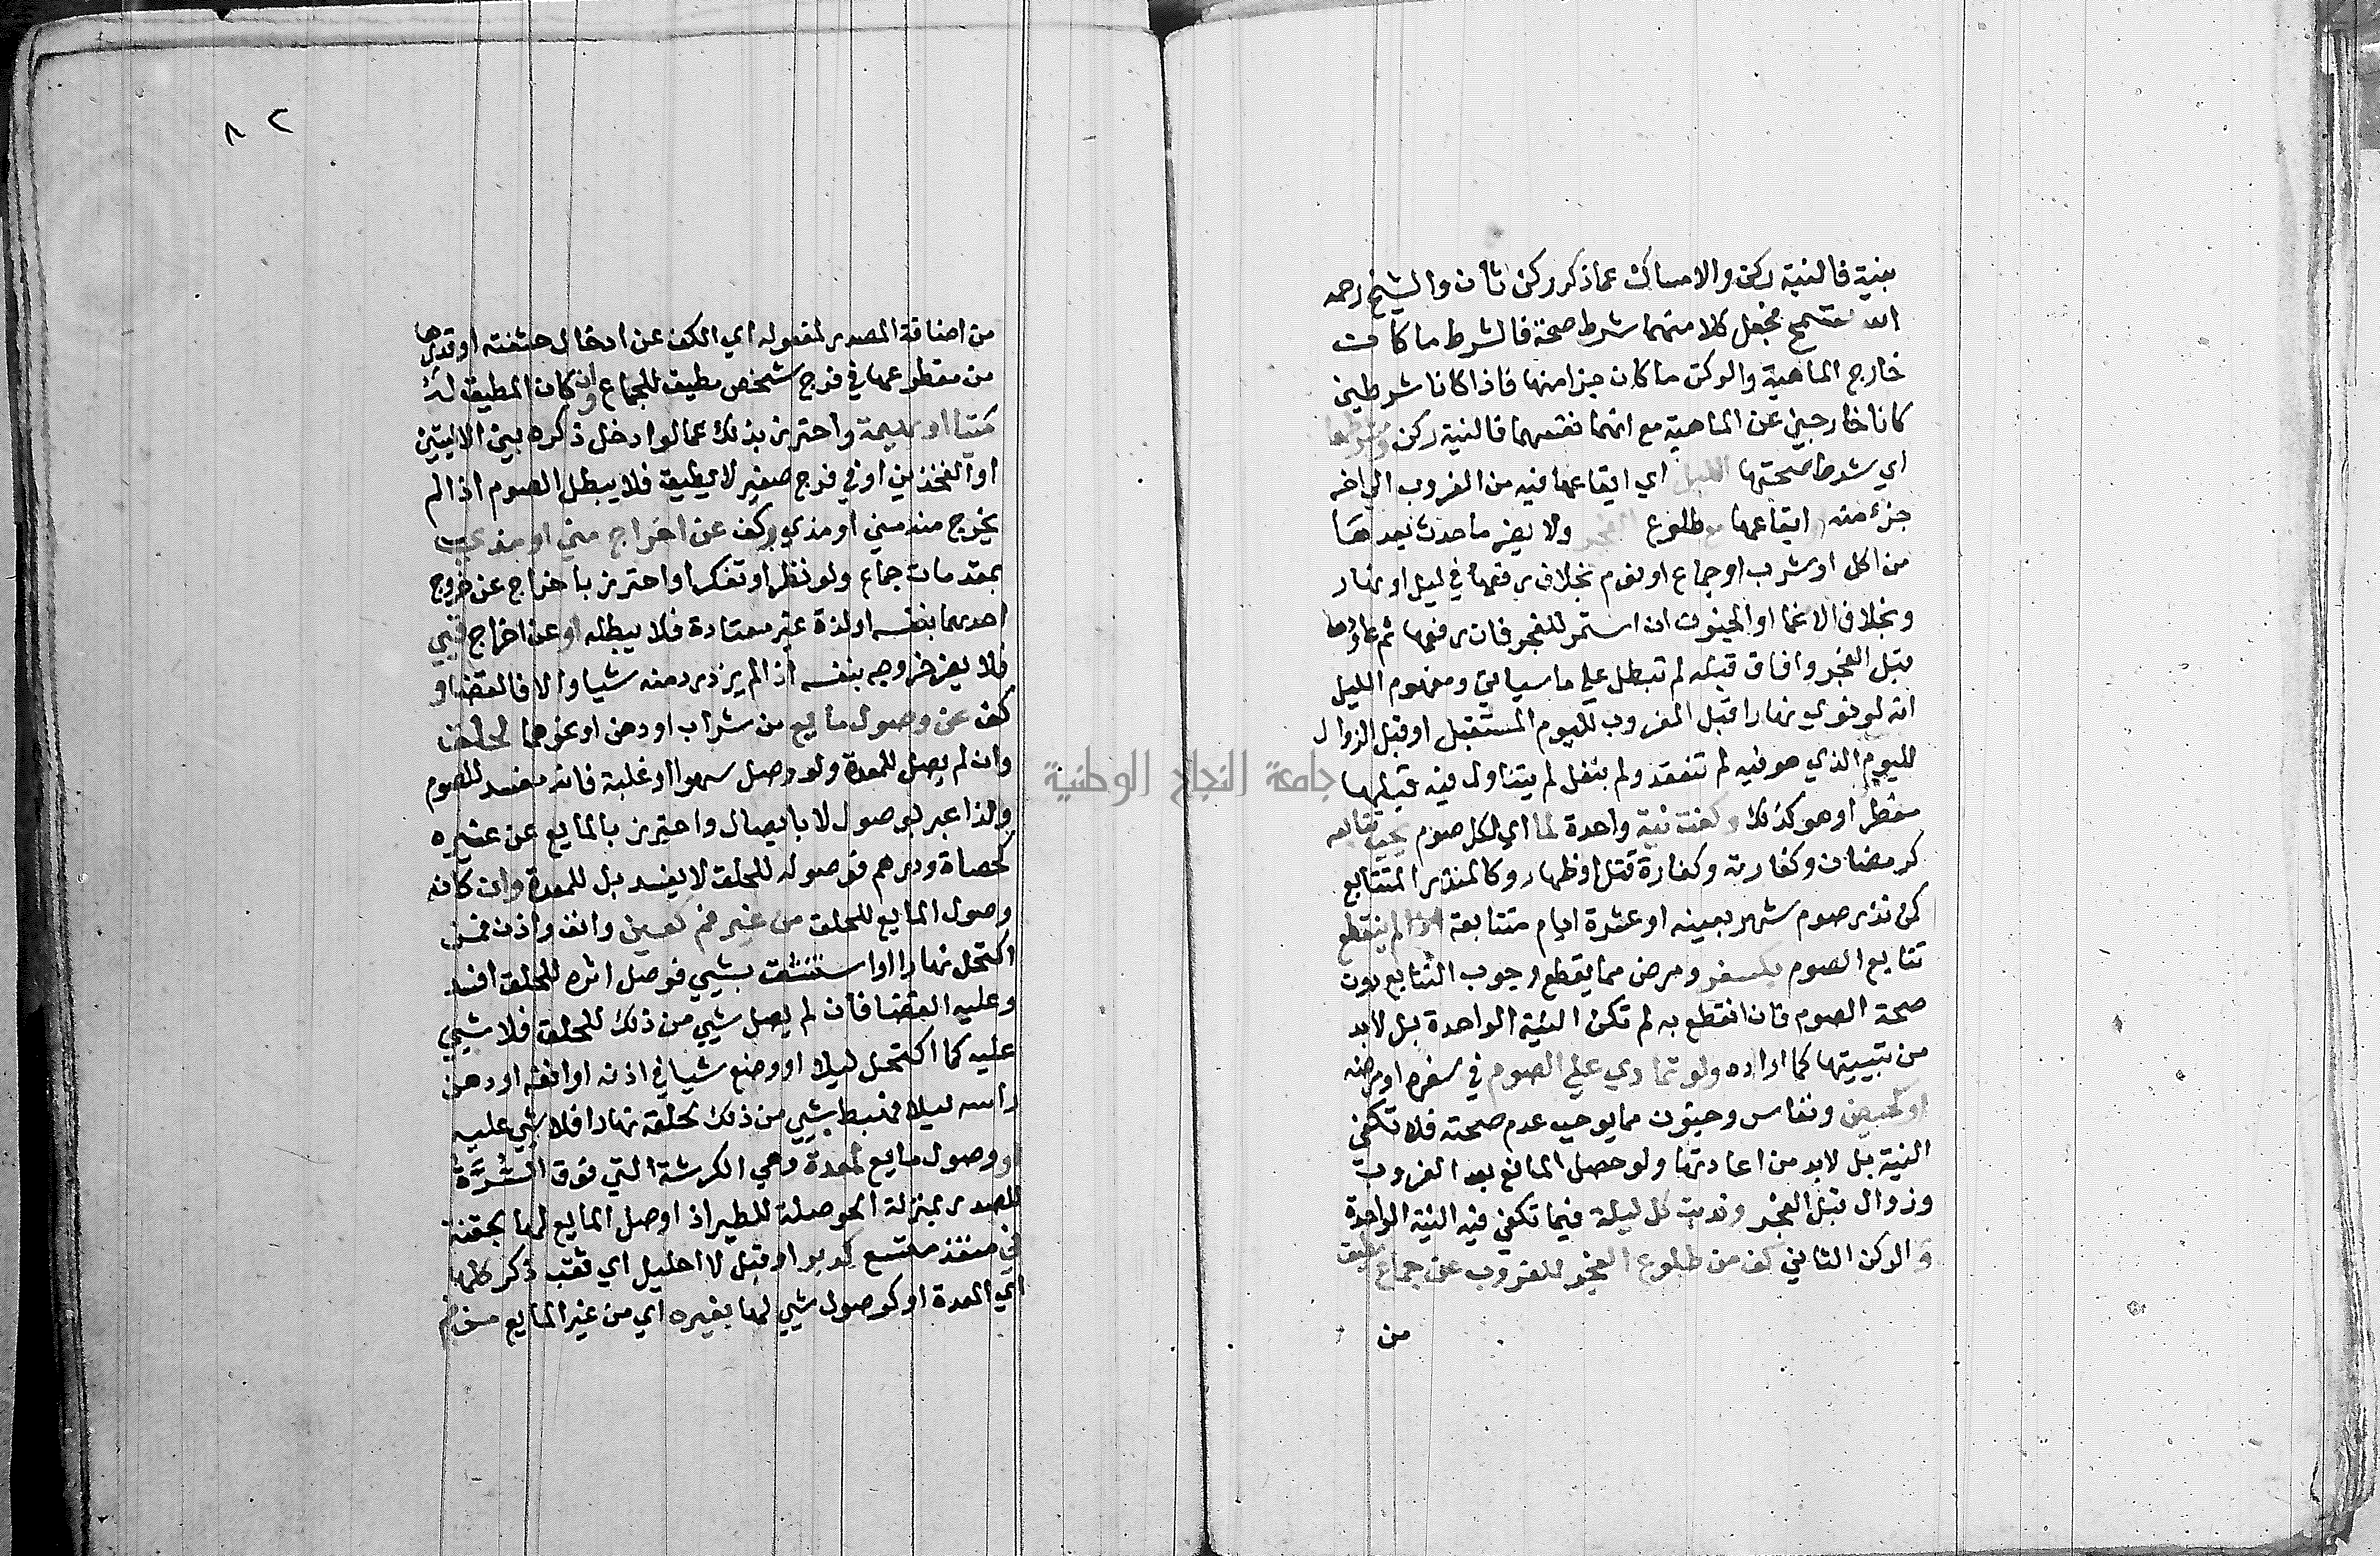 بنية فالنية ركن والامساك عما ذكر ركن ثان والشيخ رحمه
الله تسمح فجعل كلا منهما شرط صحة فالشرط ما كان
خارج الماهية والركن ما كان جزا منها فاذا كانا شرطين
كانا خارجين عن الماهية مع انهما نفسهما فالنية ركن وشرطها
اي شرط صحتها الليل اي ايقاعها فيه من الغروب الي اخر
جزء منه ايقاعها مع طلوع الفجر ولا يضر ما حدث بعدها
من اكل او شرب او جماع او نوم بخلاف رفعها في ليل او نهار
وبخلاف الاغما او الجنون ان استمر للفجر فان رفعها ثم عاودها
قبل الفجر وافاق قبله لم تبطل علي ما سياتي ومفهوم الليل
انه لو نوي نهارا قبل الغروب لليوم المستقبل او قبل الزوال
لليوم الذي هو فيه لم تنعقد ولم بنفل لم يتناول فيه قبلها
مفطرا وهو كذلك وكفت نية واحدة لما اي لكل صوم يجب تتابعه
كرمضان وكفارته وكفارة قتل او ظهار وكالنذر المتتابع
كمن نذر صوم شهر بعينه او عشرة ايام متتابعة اذا لم ينقطع
تتابع الصوم بكسفر ومرض مما يقطع وجوب التتابع دون
صحة الصوم فان انقطع به لم تكن النية الواحدة بل لابد
من تبييتها كما اراده ولو تمادي علي الصوم في سفره او مرضه
او كحيض ونفاس وجنون مما يوجب عدم صحته فلا تكفي
النية بل لابد من اعادتها ولو حصل المانع بعد الغروب
وزوال قبل الفجر وندبت كل ليلة فيما تكفي فيه النية الواحدة
والركن الثاني كف من طلوع الفجر للغروب عن جماع مطيق
من
جامعة النجاح الوطنية
٨٢
من اضافة المصدر لمفعوله اي الكف عن ادخال حشفته او قدرها
من مقطوعها في فرج شخص مطيق للجماع وان كان المطيق له
ميتا او بهيمة واحترز بذلك عما لو ادخل ذكره بين الاليتين
او الفخذين او في فرج صغير لا يطيق فلا يبطل الصوم اذا لم
يخرج منه مني او مذي وكف عن اخراج مني او مذي
بمقدمات جماع ولو نظرا او تفكرا واحترز باخراج عن خروج
احدهما بنفسه او لذة غير معتادة فلا يبطله او عن اخراج قيي
فلا يضر خروجه بنفسه اذا لم يزدرد منه شيا والا فالقضا و
كف عن وصول مايع من شراب او دهن او نحوهما لحلق
وان لم يصل للمعدة ولو وصل سهوا او غلبة فانه مفسد للصوم
ولذا عبر بوصول لا بايصال واحترز بالمايع عن غيره
كحصاة ودرهم فوصوله للحلق لا يفسد بل للمعدة وان كان
وصول المايع للحلق من غير فم كعين وانف واذن فمن
اكتحل نهارا او استنشق بشيي فوصل اثره للحلق افسد
وعليه القضا فان لم يصل شيي من ذلك للحلق فلا شيي
عليه كما اكتحل ليلا او وضع شيا في اذنه او انفه او دهن
راسه ليلا فهبط بشيي من ذلك لحلقه نهارا فلا شي عليه
او وصول مايع لمعدة وهي الكرشة التي فوق السُّرَّة
للصدر بمنزلة الحوصلة للطير اذ اوصل المايع لها بحقنة
في منفذ متسع كدبر او قبل لا احليل اي ثقب ذكر كلها
اي المعدة او كوصول شيي لها بغيره اي من غير المايع من فم